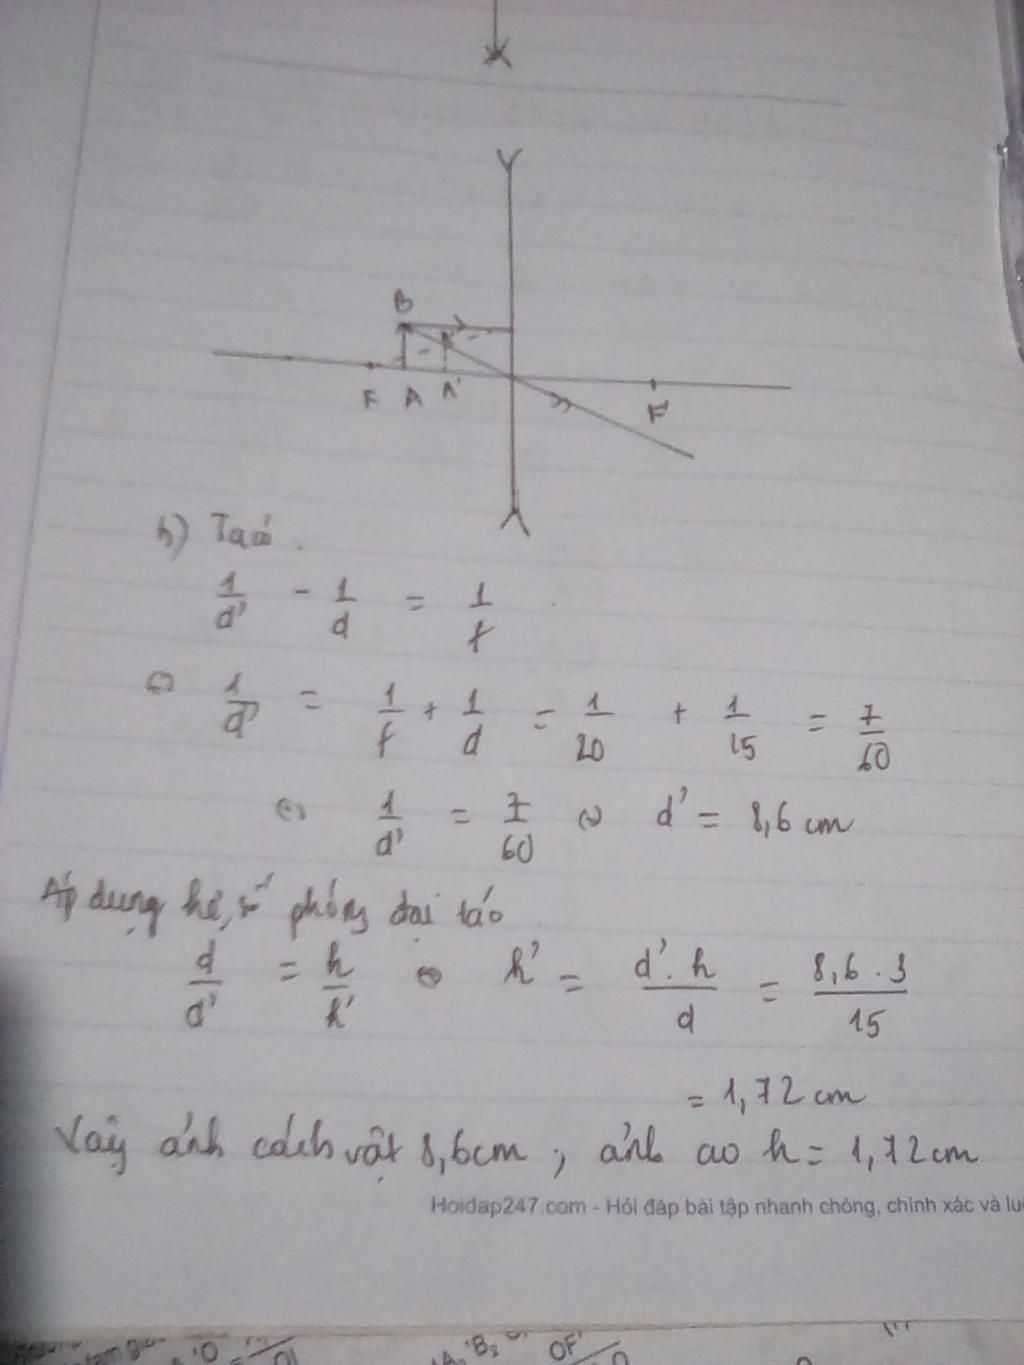 B
F A A' F'
b) Ta có.
1/d' - 1/d = 1/f
⇔ 1/d' = 1/f + 1/d = 1/20 + 1/15 = 7/60
⇔ 1/d' = 7/60 ⇔ d' = 8,6 cm
Áp dụng hệ số phóng đại
d/d' = h/h' ⇔ h' = d'.h/d = 8,6.3/15
= 1,72 cm
Vậy ảnh cách vật 8,6cm ; ảnh cao h = 1,72 cm
Hoidap247.com - Hỏi đáp bài tập nhanh chóng, chính xác và
'B₂ OF'